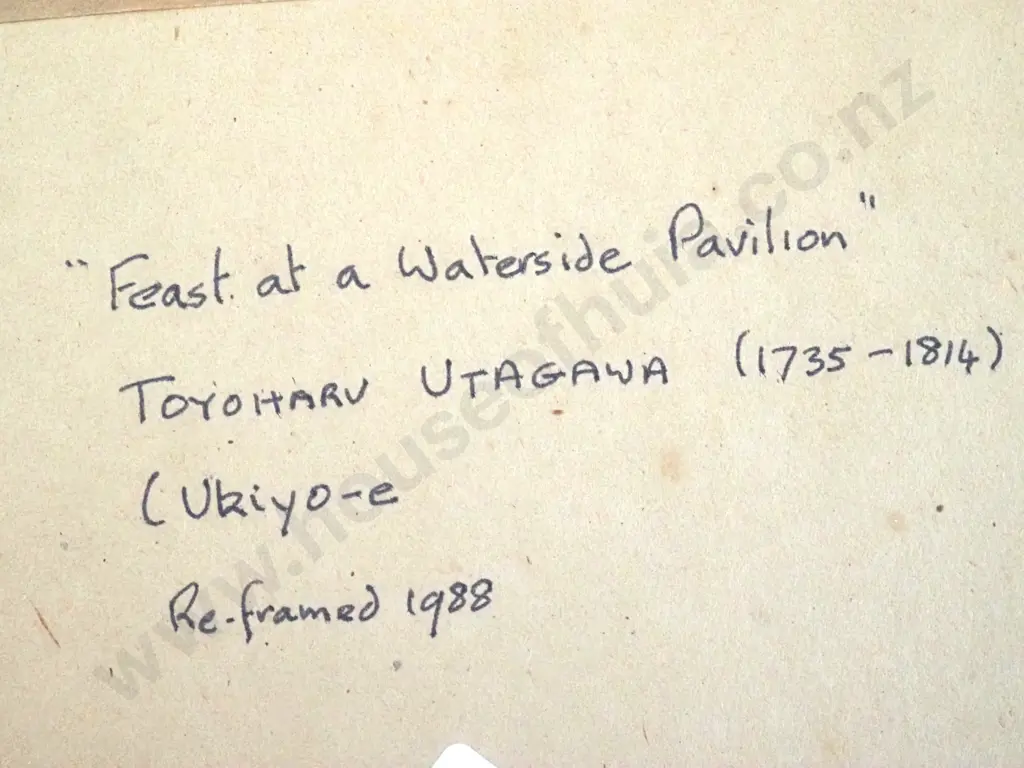 "Feast at a Waterside Pavilion"
TOYOHARU UTAGAWA (1735-1814)
(Ukiyo-e
Re-framed 1988
www.houseofhuia.co.nz